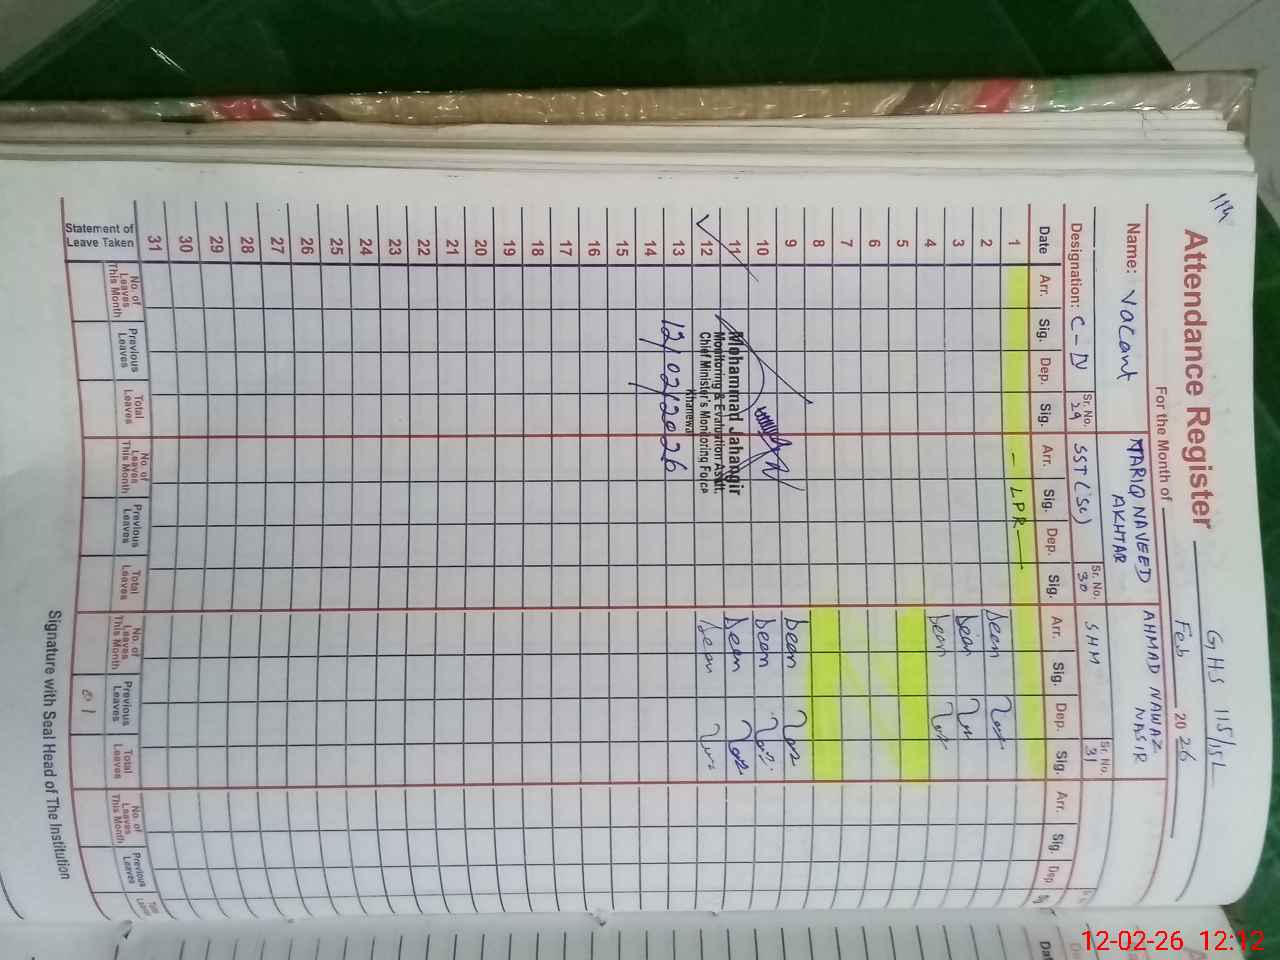 114
GHS 115/15L
Attendance Register
For the Month of Feb 2026
Name: Vacant
TARIQ NAVEED AKHTAR
AHMAD NAWAZ NASIR
Designation: C-IV Sr. No. 29
SST (Sc) Sr. No. 30
SHM Sr. No. 31
Date Arr. Sig. Dep. Sig. Arr. Sig. Dep. Sig. Arr. Sig. Dep. Sig. Arr. Sig. Dep
1 - LPR
2
3
4
5
6
7
8
9
10
11
12
13
14
15
16
17
18
19
20
21
22
23
24
25
26
27
28
29
30
31
Mohammad Jahangir
Monitoring & Evaluation Asstt.
Chief Minister's Monitoring Force
Khanewal
12/02/2026
Statement of Leave Taken
No. of Leaves This Month Previous Leaves Total Leaves No. of Leaves This Month Previous Leaves Total Leaves No. of Leaves This Month Previous Leaves Total Leaves No. of Leaves This Month Previous Leaves
01
Signature with Seal Head of The Institution
12-02-26 12:12